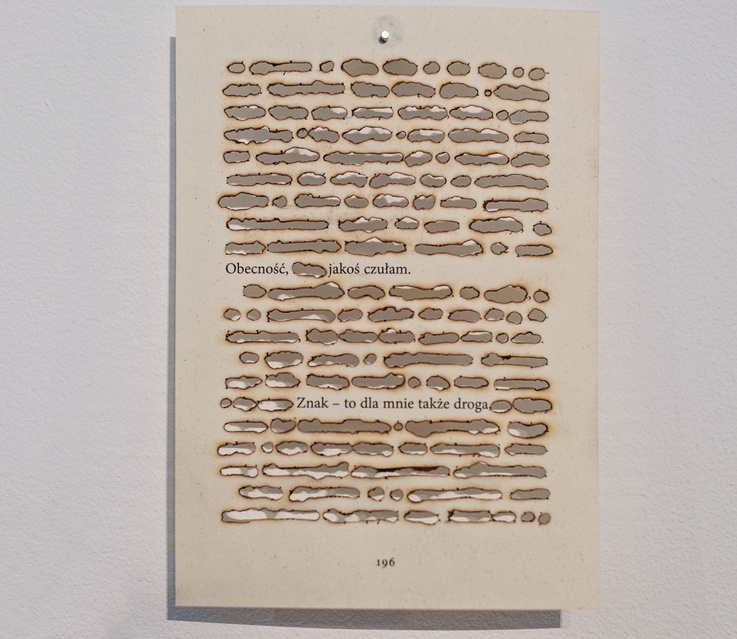 Obecność, jakoś czułam.
,
Znak – to dla mnie także droga,
196